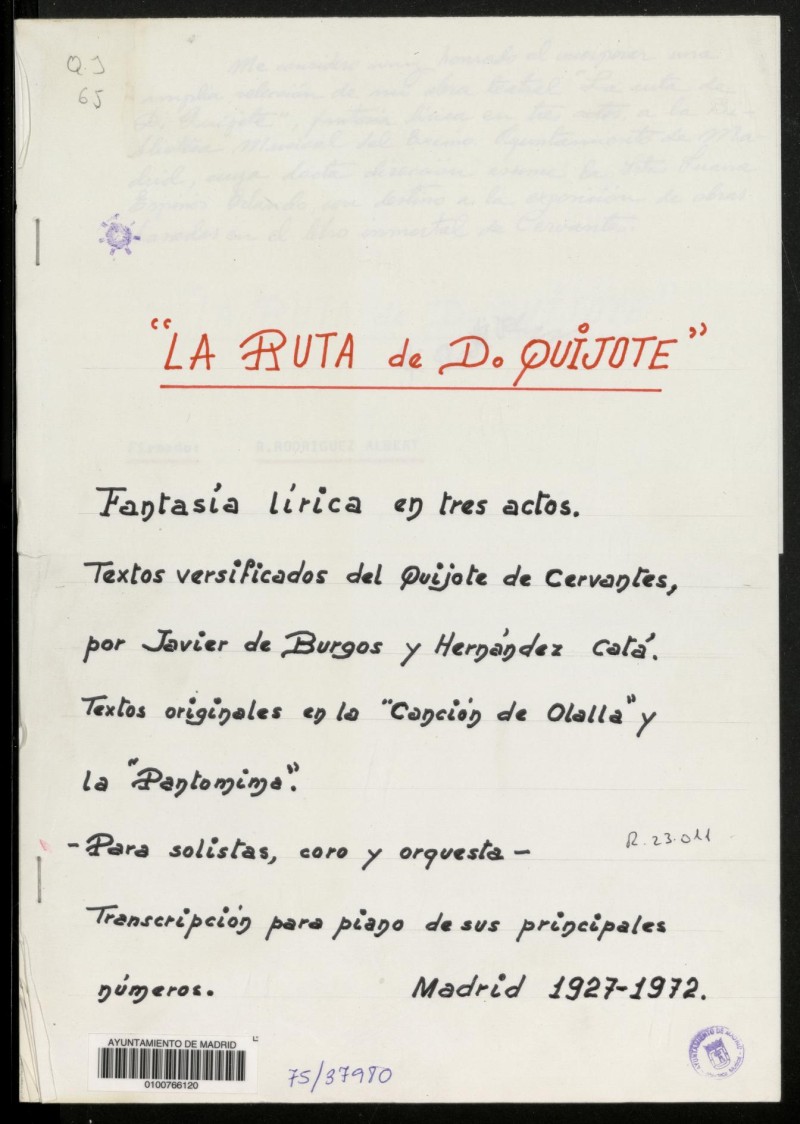 QJ
65
"LA RUTA de D. QUIJOTE"
Fantasía lírica en tres actos.
Textos versificados del Quijote de Cervantes,
por Javier de Burgos y Hernández Catá.
Textos originales en la "Canción de Olalla" y
la "Pantomima".
-Para solistas, coro y orquesta-
R.23.011
Transcripción para piano de sus principales
números. Madrid 1927-1972.
AYUNTAMIENTO DE MADRID
0100766120
75/37980
AYUNTAMIENTO DE MADRID